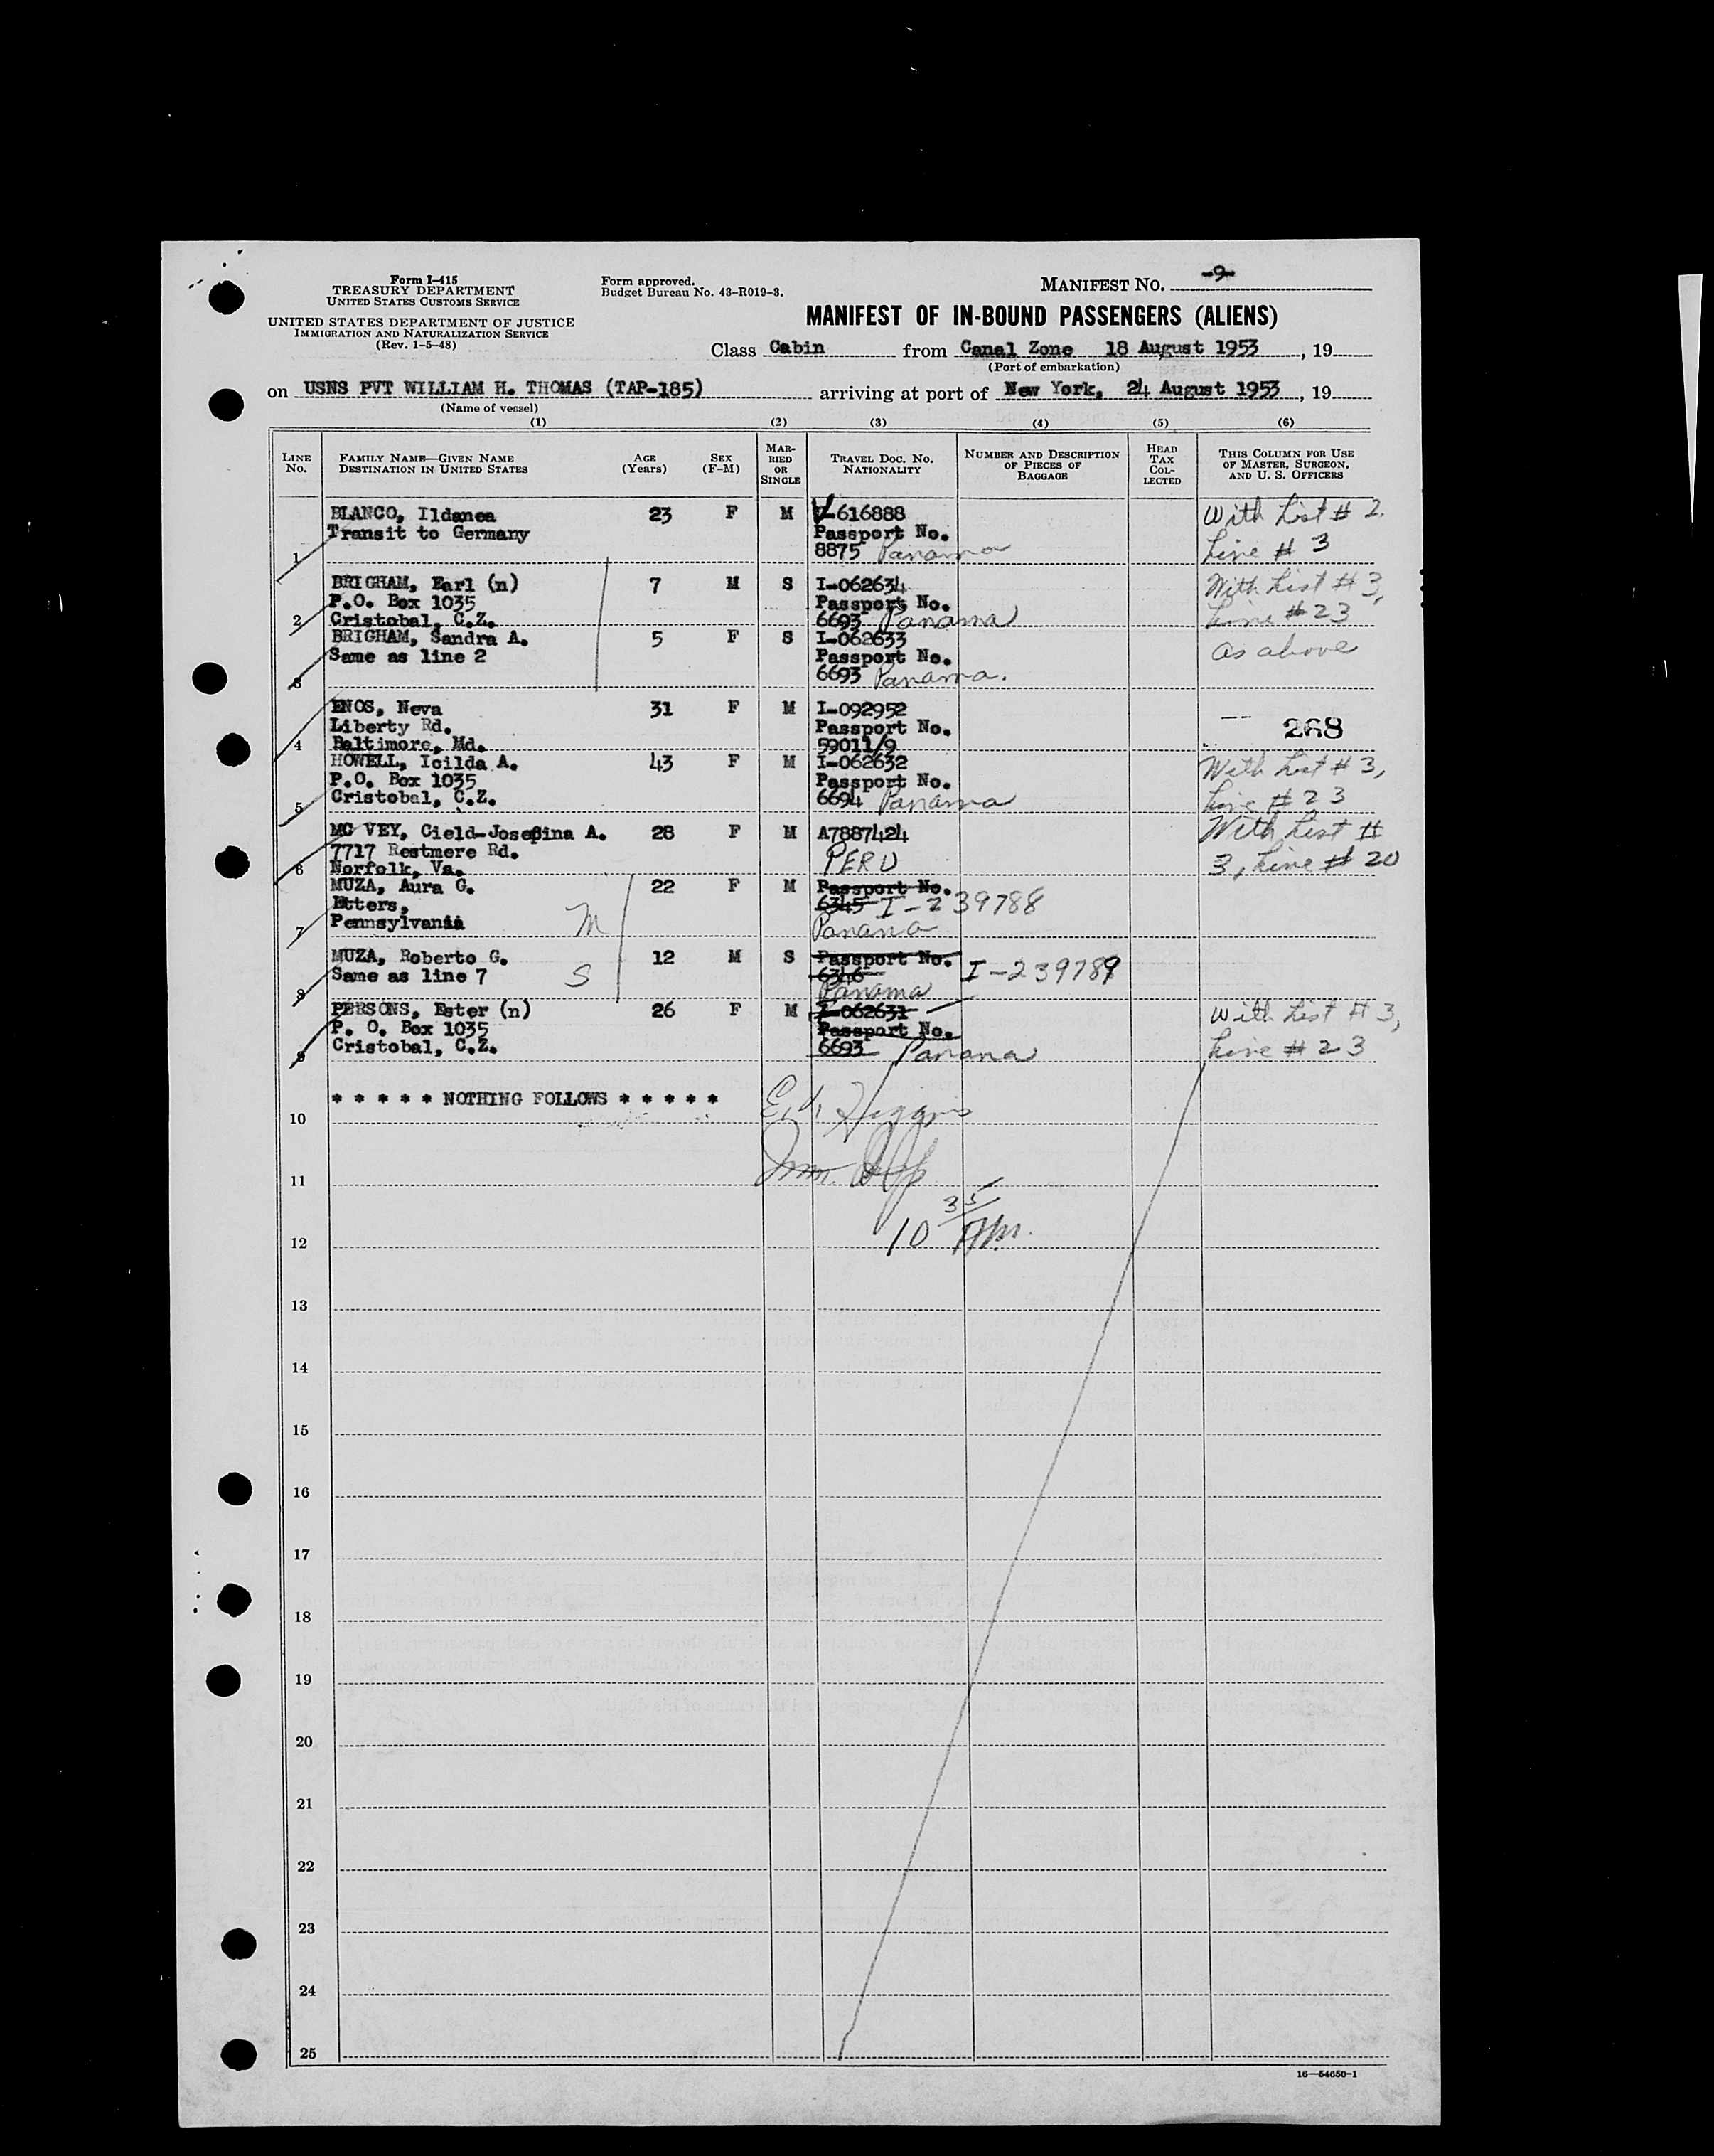 Form I-415
TREASURY DEPARTMENT
UNITED STATES CUSTOMS SERVICE
UNITED STATES DEPARTMENT OF JUSTICE
IMMIGRATION AND NATURALIZATION SERVICE
(Rev. 1-5-48)
Form approved.
Budget Bureau No. 43-R019-3.
MANIFEST NO. -9-
MANIFEST OF IN-BOUND PASSENGERS (ALIENS)
Class Cabin from Canal Zone 18 August 1953, 19
(Port of embarkation)
on USNS PVT WILLIAM H. THOMAS (TAP-185) arriving at port of New York, 24 August 1953, 19
(Name of vessel)
(1) (2) (3) (4) (5) (6)
LINE No. FAMILY NAME—GIVEN NAME DESTINATION IN UNITED STATES AGE (Years) SEX (F-M) MARRIED OR SINGLE TRAVEL DOC. NO. NATIONALITY NUMBER AND DESCRIPTION OF PIECES OF BAGGAGE HEAD TAX COLLECTED THIS COLUMN FOR USE OF MASTER, SURGEON, AND U. S. OFFICERS
BLANCO, Ildanea 23 F M V-616888 With List # 2.
Transit to Germany Passport No.
1 8875 Panama Line # 3
BRIGHAM, Earl (n) 7 M S I-062634 With List # 3,
P.O. Box 1035 Passport No.
2 Cristobal, C.Z. 6693 Panama Line # 23
BRIGHAM, Sandra A. 5 F S I-062633 as above
Same as line 2 Passport No.
3 6693 Panama.
ENOS, Neva 31 F M I-092952
Liberty Rd. Passport No. 268
4 Baltimore, Md. 59011/9
HOWELL, Icilda A. 43 F M I-062632 With List # 3,
P.O. Box 1035 Passport No.
5 Cristobal, C.Z. 6694 Panama Line # 23
MC VEY, Cield-Josefina A. 28 F M A7887424 With List #
7717 Restmere Rd. PERU 3, Line # 20
6 Norfolk, Va.
MUZA, Aura G. 22 F M Passport No.
Etters, 6345 I-239788
7 Pennsylvania M Panama
MUZA, Roberto G. 12 M S Passport No.
Same as line 7 S 6346 I-239789
8 Panama
PERSONS, Ester (n) 26 F M I-062631 With List # 3,
P. O. Box 1035 Passport No.
9 Cristobal, C.Z. 6693 Panama Line # 23
* * * * * NOTHING FOLLOWS * * * * *
10 Higgins
11 Imm.
10 35/ AM.
12
13
14
15
16
17
18
19
20
21
22
23
24
25
16—54650-1